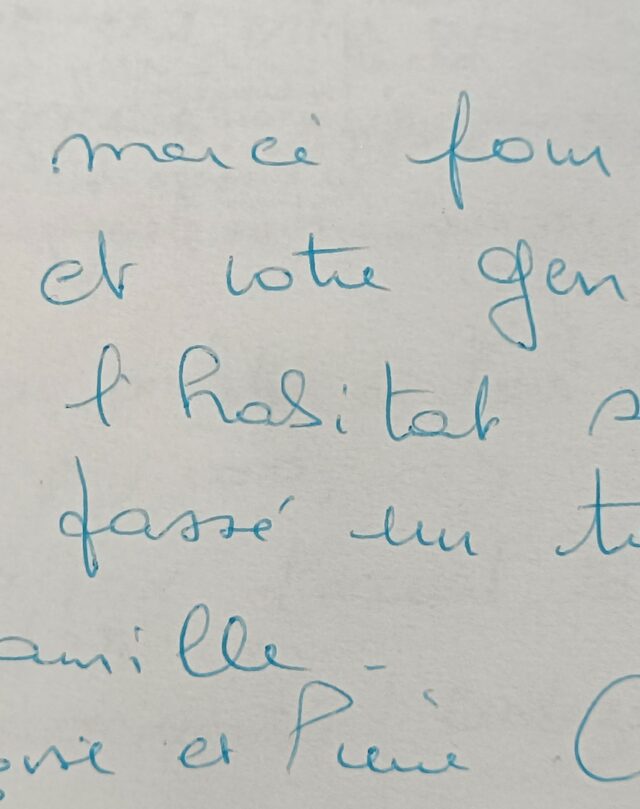 merci pour
et votre gen
l'habitat s
passé un t
amille -
et Pierre